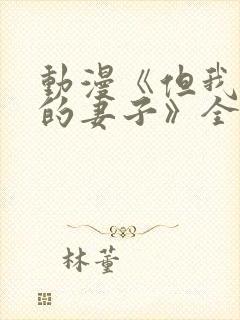 動漫《但我
的妻子》全
林董